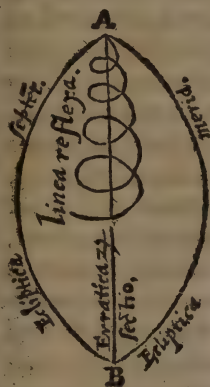 A
merid.
linea reflexa.
Ecliptica
Erraticaꝝ
sectio,
Ecliptica
B